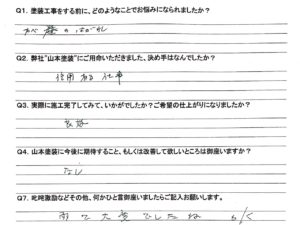 Q1. 塗装工事をする前に、どのようなことでお悩みになられましたか？
Q2. 弊社"山本塗装"にご用命いただきました、決め手はなんでしたか？
信用ある仕事
Q3. 実際に施工完了してみて、いかがでしたか？ご希望の仕上がりになりましたか？
Q4. 山本塗装に今後に期待すること、もしくは改善して欲しいところは御座いますか？
なし
Q7. 叱咤激励などその他、何かひと言御座いましたらご記入お願いします。
雨で大変でしたね